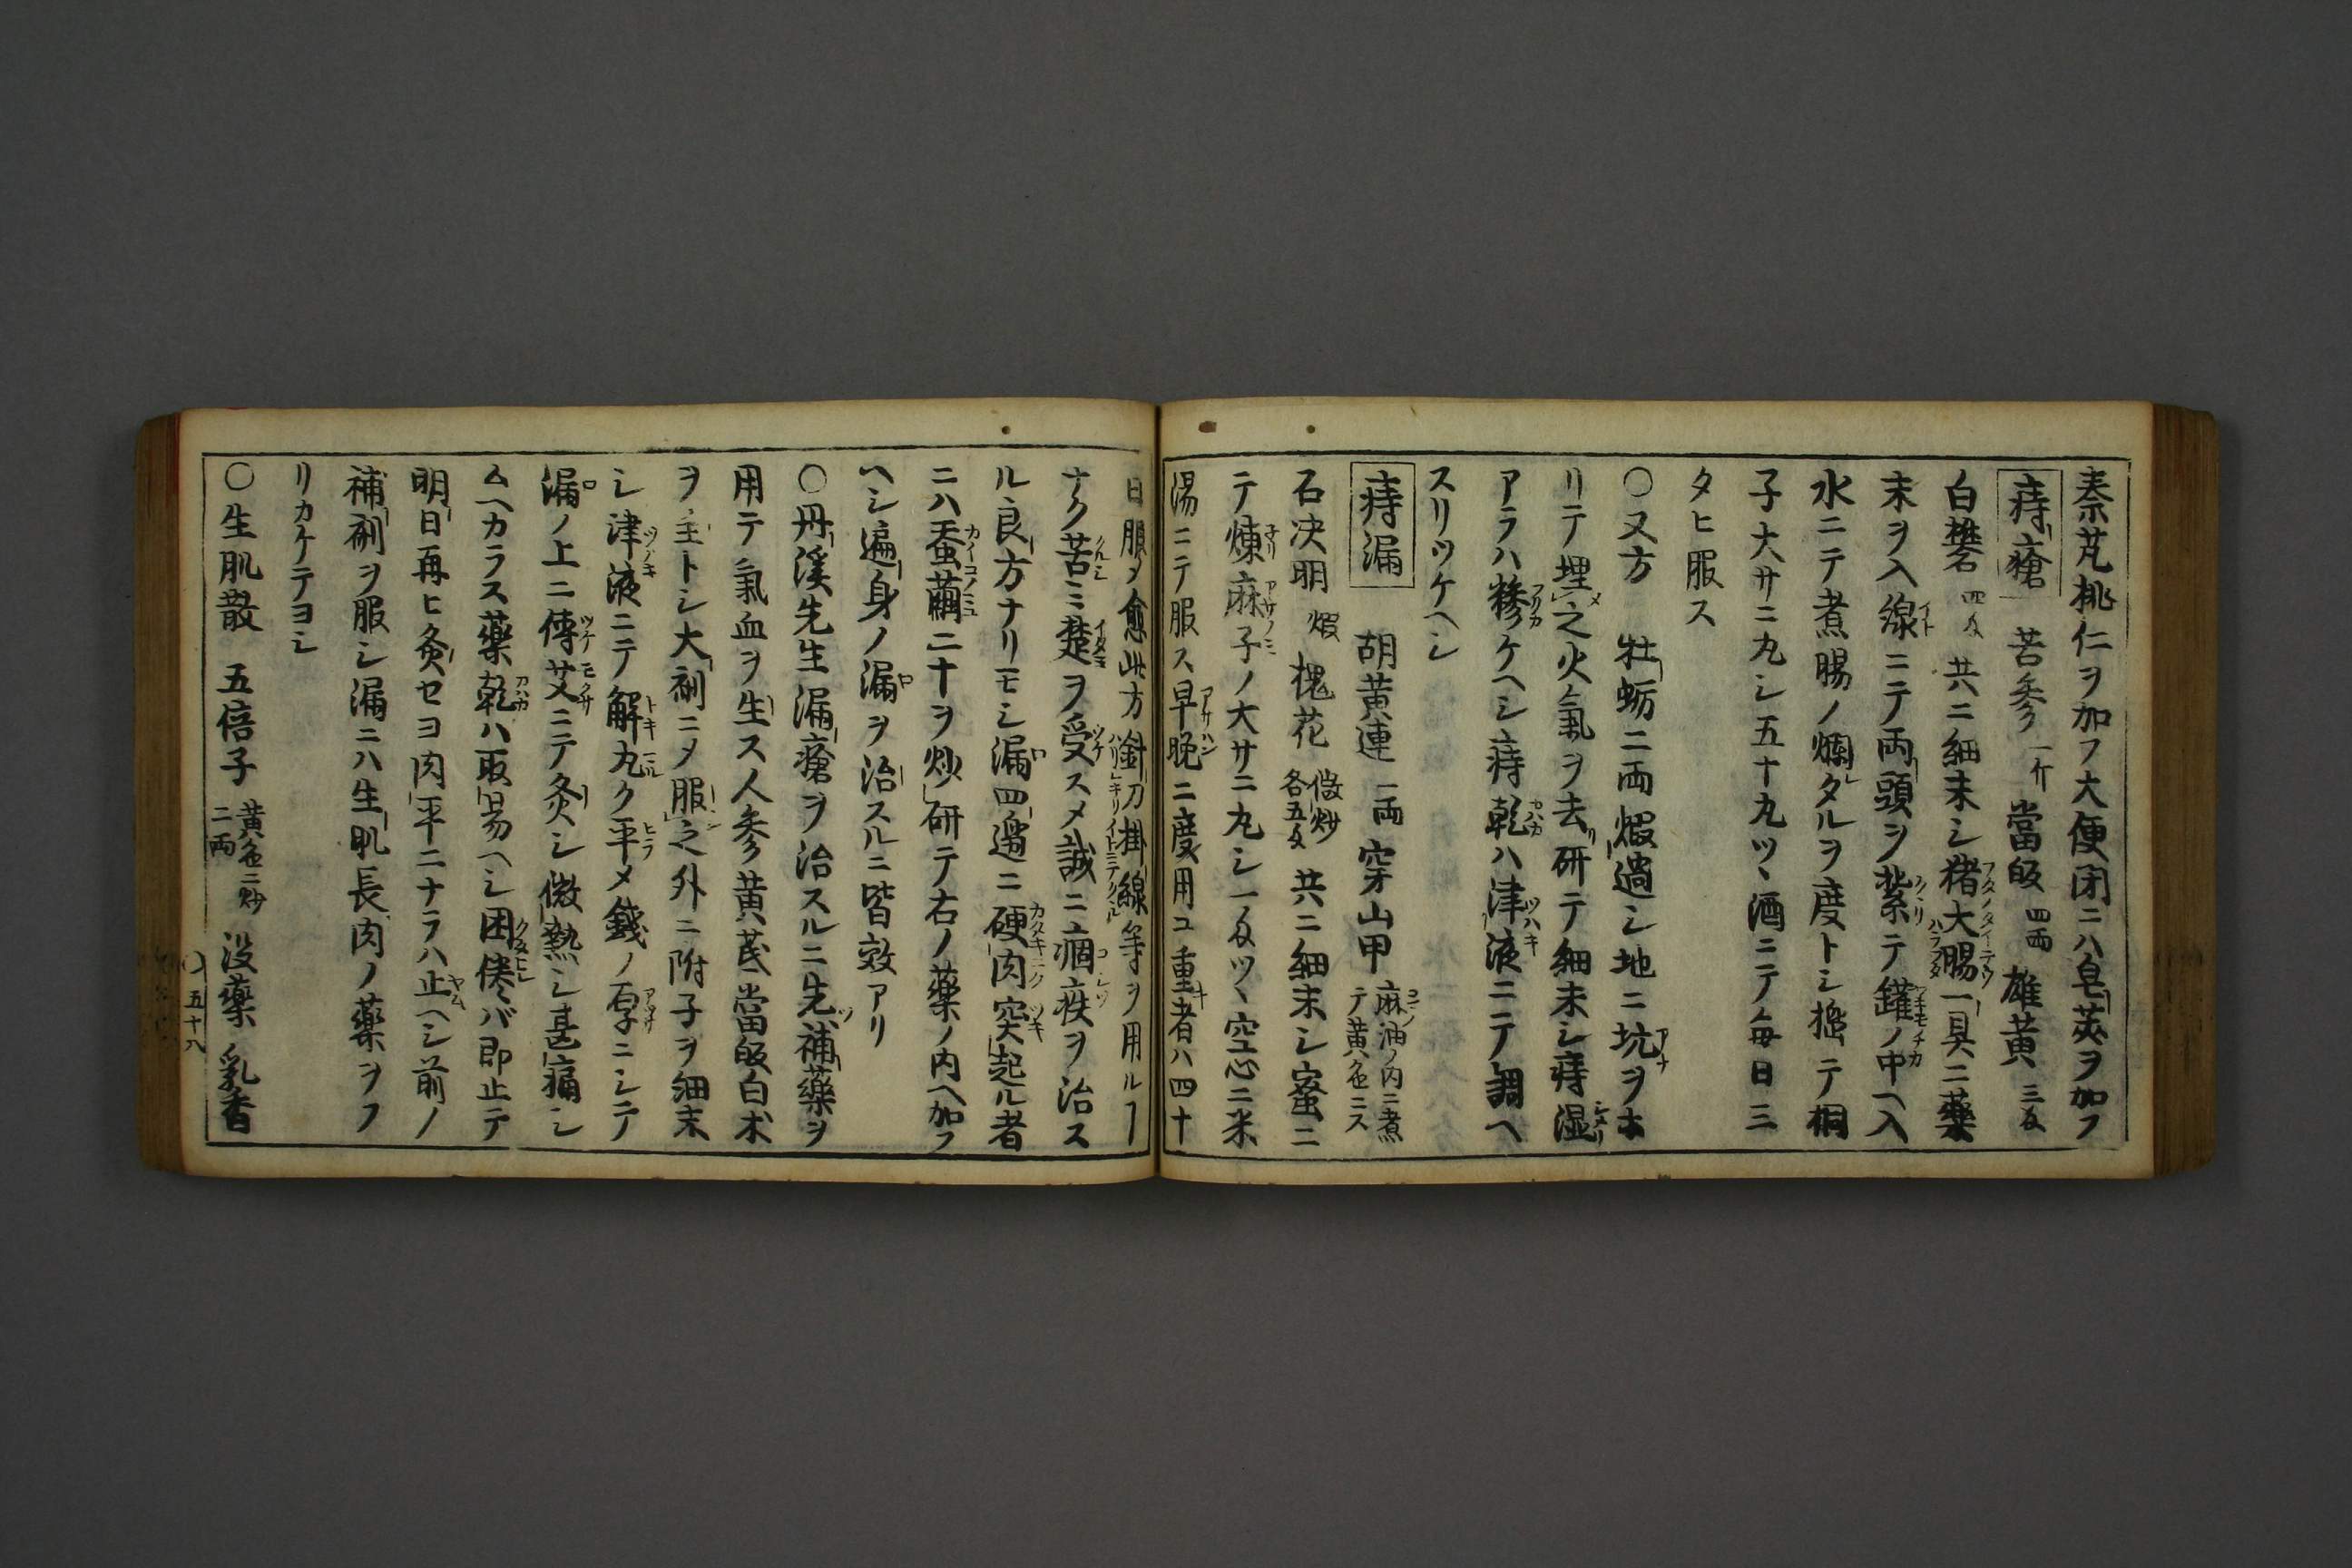 秦艽桃仁ヲ加フ大便閉ニハ皂莢ヲ加フ
痔瘡 苦參一斤 當皈四両 雄黄三匁
白礬四匁 共ニ細末シ猪大腸一具ニ藥
末ヲ入線ニテ両頭ヲ紮テ鑵ノ中ヘ入
水ニテ煮腸ノ爛タルヲ度トシ搗テ桐
子大サニ丸シ五十丸ツヽ酒ニテ毎日三
タヒ服ス
○又方 牡蛎二両煆過シ地ニ坑ヲホ
リテ埋之火氣ヲ去研テ細末シ痔湿
アラハ糝ケヘシ痔乾ハ津液ニテ調ヘ
スリツケヘシ
痔漏 胡黄連一両 穿山甲麻油ノ内ニ煮テ黄色ニス
石决明煆 槐花微炒各五匁 共ニ細末シ蜜ニ
テ煉麻子ノ大サニ丸シ一匁ツヽ空心ニ米
湯ニテ服ス早晩二度用ユ重者ハ四十
日服メ愈此方針刀掛線等ヲ用ルヿ
ナク苦ミ楚ヲ受スメ誠ニ痼疾ヲ治ス
ル良方ナリモシ漏四邉ニ硬肉突起ル者
ニハ蚕繭二十ヲ炒研テ右ノ藥ノ内ヘ加フ
ヘシ遍身ノ漏ヲ治スルニ皆效アリ
○丹溪先生漏瘡ヲ治スルニ先補藥ヲ
用テ氣血ヲ生ス人參黄芪當皈白朮
ヲ主トシ大剤ニメ服之外ニ附子ヲ細末
シ津液ニテ解丸ク平メ錢ノ厚ニシテ
漏ノ上ニ傅艾ニテ灸シ微熱シ甚痛シ
ムヘカラス藥乾ハ取易ヘシ困倦バ即止テ
明日再ヒ灸セヨ肉平ニナラハ止ヘシ前ノ
補剤ヲ服シ漏ニハ生肌長肉ノ藥ヲフ
リカケテヨシ
○生肌散 五倍子黄色ニ炒二両 没藥 乳香
五十八